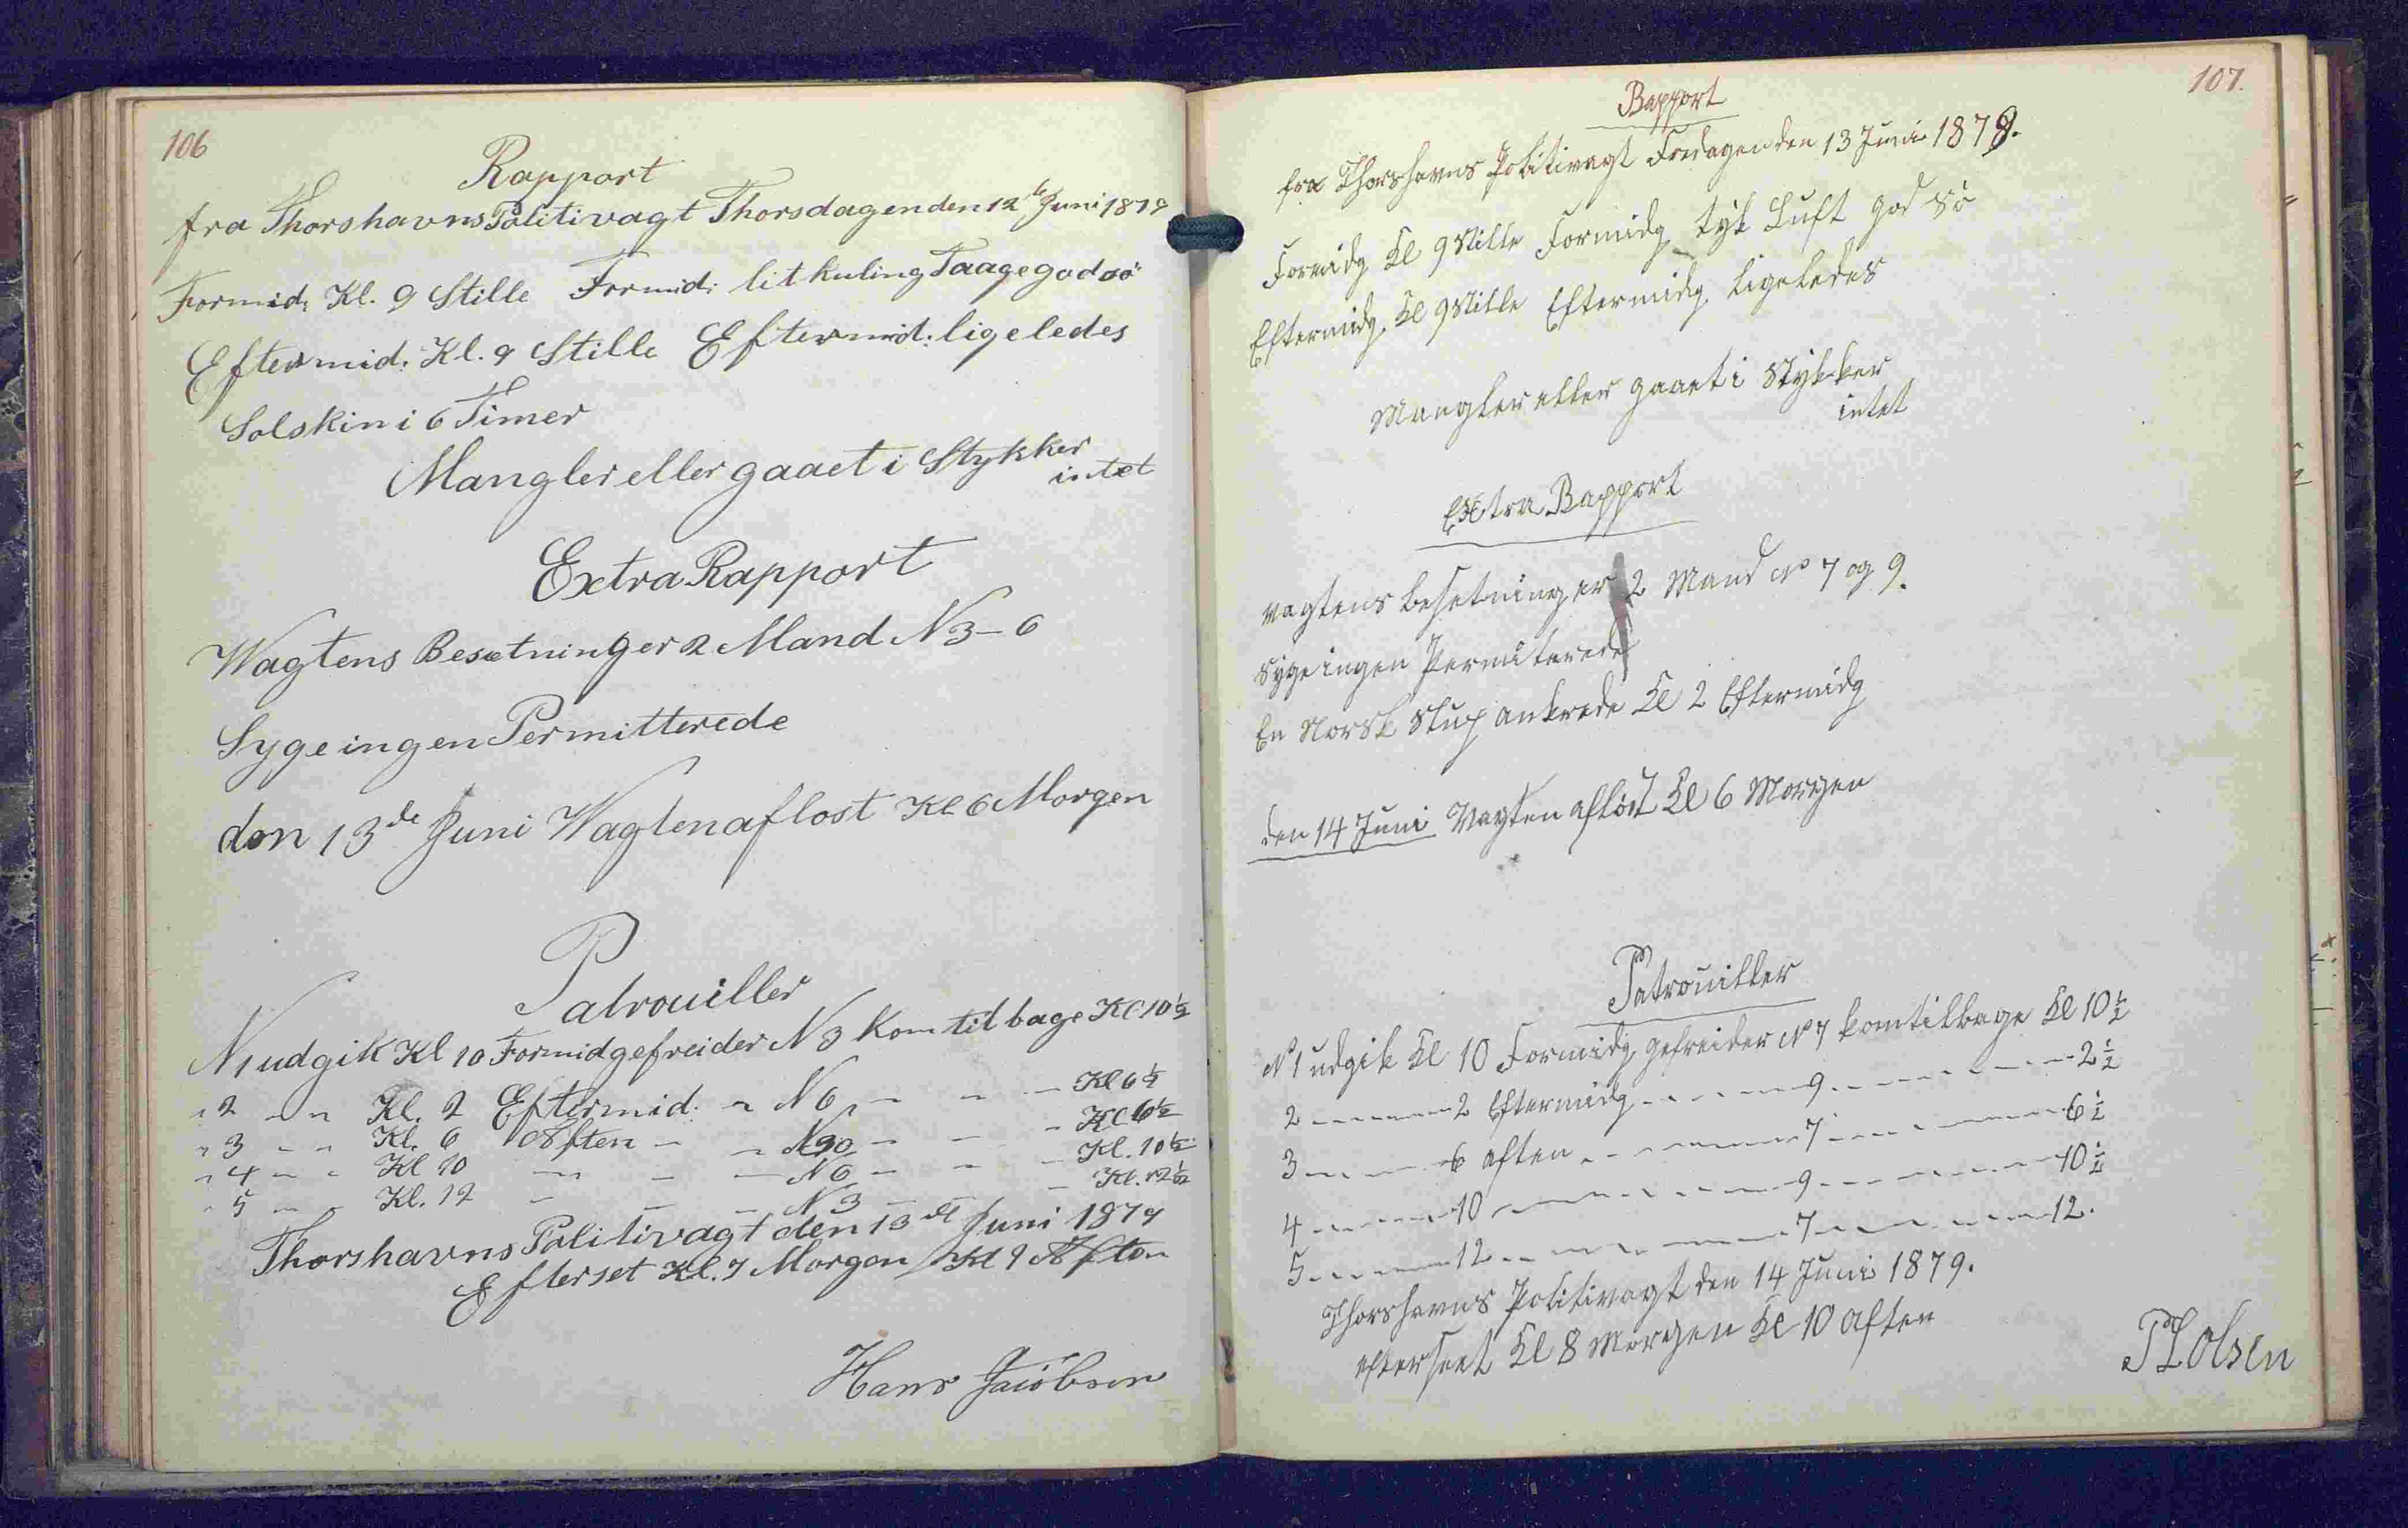 106
Rapport
fra Thorshavns Politivagt Thorsdagen den 12te Juni 1879
Formid: Kl. 9 Stille Formid: lit kuling Taage god sö
Eftermid: Kl. 9 Stille Eftermid: ligeledes
Solskin i 6 Timer
Mangler eller gaaet i Stykker
intet
Extra Rapport
Wagtens Besætning er 2 Mand N 3 - 6
Syge ingen Permitterede
den 13de Juni Wagten aflost Kl 6 Morgen
Patrouiller
N 1 udgik Kl 10 Formid gefreider N 3 kom tilbage Kl 10 1/2
" 2 " " Kl. 2 Eftermid. " N 6 " " — Kl
" 3 " " Kl. 6 Aften — " — — " Kl 6 1/2
" 4 " " Kl 10 " — — N 6 — " — Kl. 10 1/2
" 5 " " Kl. 12 — — — N 3 — — — Kl. 12 1/2
Thorshavns Politivagt den 13de Juni 1879
Efterset Kl. 7 Morgen Kl 9 Aften
Hans Jacobsen
107.
Rapport
fra Thorshavns Politivagt Fredagen den 13 Juni 1879.
Formidg Kl 9 Stille Formidg tÿk Luft god Sö
Eftermidg. Kl 9 Stille Eftermidg ligeledes
Mangler eller gaaet i Stÿkker
intet
Extra Rapport
Vagtens besetning er 2 Mand No 7 og 9.
Syge ingen Permiterede
En Norsk Slup ankrede Kl 2 Eftermidg
den 14 Juni Vagten afløst Kl 6 Morgen
Patrouiller
No 1 udgik Kl 10 Formidg gefreider No 7 kom tilbage Kl 10 1/2
2 - - - - - 2 Eftermidg - - - - 9 - - - - - - - 2 1/2
3 - - - - - 6 aften - - - - - 7 - - - - - - - 6 1/2
4 - - - - - 10 - - - - - - - 9 - - - - - - - 10 1/2
5 - - - - - 12 - - - - - - - 7 - - - - - - - 12.
Thorshavns Politivagt den 14 Juni 1879.
efterseet Kl 8 Morgen Kl 10 Aften
Olsen